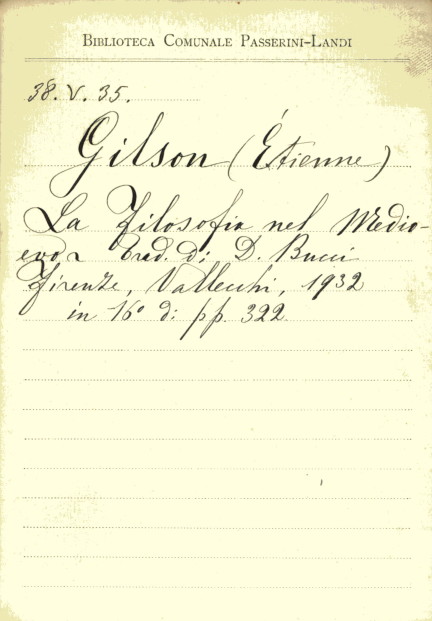 BIBLIOTECA COMUNALE PASSERINI-LANDI
38. V. 35.
Gilson (Étienne)
La Filosofia nel Medio-
evo Trad. di D. Bucci
Firenze, Vallecchi, 1932
in 16° di pp. 322